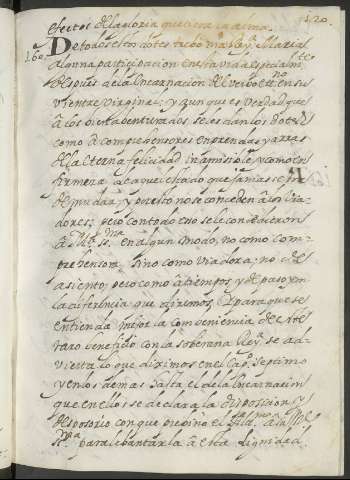 120.
efectos dela gloria que tiene la alma.
160 De todos estos dotes tubo mª ssª. Maria
alguna participacion en esta vida especialmte
despues dela Encarnacion del verbo etno. en su
vientre virginal; y aunque es verdad que
â los vienabenturados se les dan los dotes
como â comprehensores en prendas y arras
dela eterna felicidad inamisible, y como en
firmeza de aquel estado que jamas se ha
de mudar; y por esto no se conceden â los via-
dores; pero con todo eso se le concedieron
â Mª. ssma. en algun modo, no como com-
prehensora, sino como viadora; no de
asiento, pero como â tiempos y de paso, y con
la diferencia que diremos. Y para que se
entienda mejor la conveniencia de este
raro beneficio con la soberana Reyª. se ad-
vierta lo que diximos en el Capº. septimo
y en los demas hasta el dela Encarnacion
que en ellos se declara la disposicion y
desposorio con que previno el Altmo. â su Me.
ssma. para lebantarla â esta dignidad.